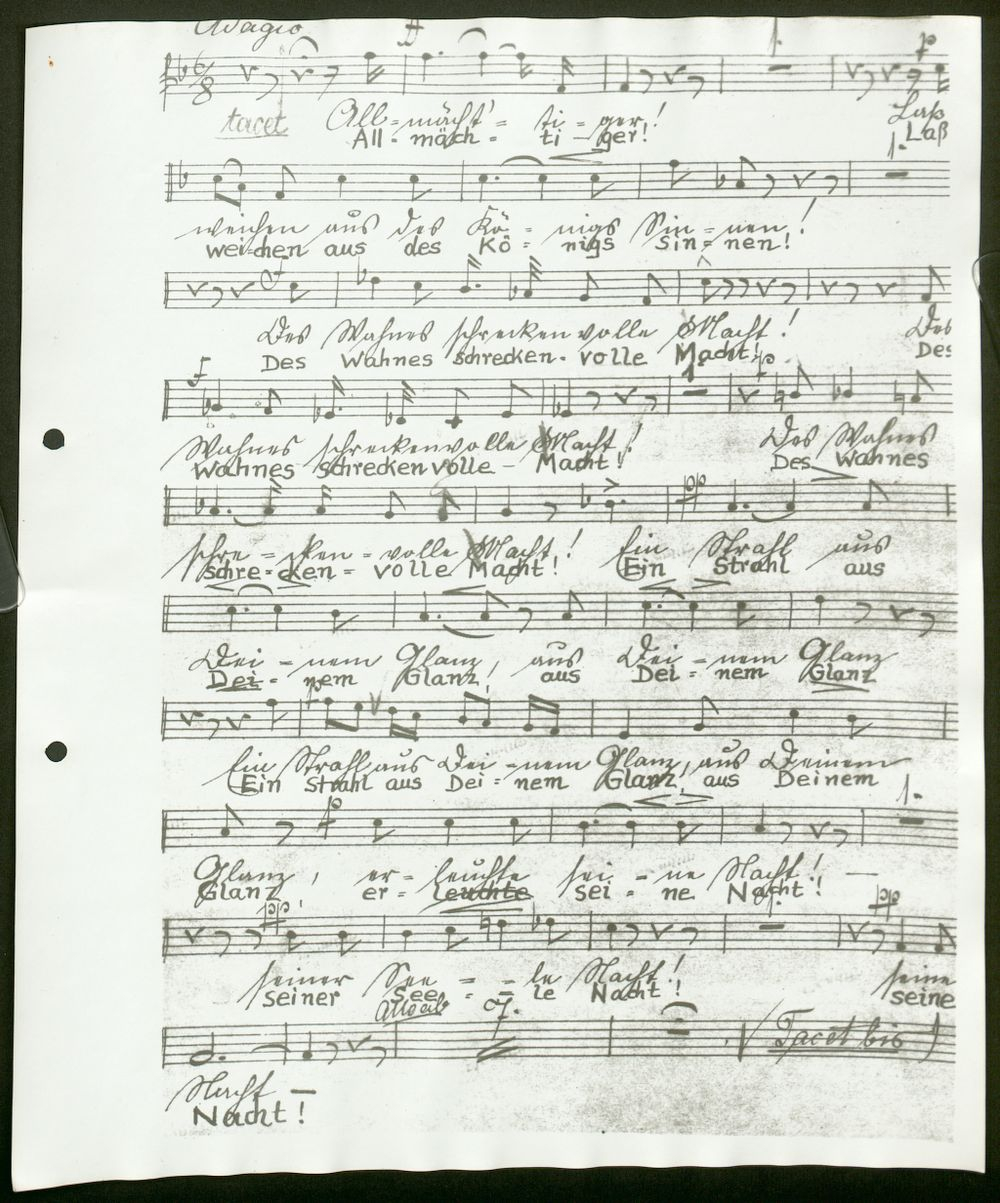 Adagio
ff 1 p
6/8
tacet All-mächt'-ti-ger! Laß
All-mäch-ti-ger! Laß
1.
weichen aus des Kö-nigs Sin-nen!
wei-chen aus des Kö-nigs Sin-nen!
f
Des Wahnes schreckenvolle Macht! Des
Des Wahnes schrecken-volle Macht! Des
f 1. p
Wahnes schreckenvolle Macht! Des Wahnes
Wahnes schreckenvolle-Macht! Des Wahnes
pp
schre-cken-volle Macht! Ein Strahl aus
schre-cken-volle Macht! Ein Strahl aus
Dei-nem Glanz, aus Dei-nem Glanz
Dei-nem Glanz, aus Dei-nem Glanz
p
Ein Strahl aus Dei-nem Glanz, aus Deinem
Ein Strahl aus Dei-nem Glanz, aus Deinem
p 1.
Glanz, er-leuchte sei-ne Nacht! —
Glanz, er-leuchte sei-ne Nacht!
pp 1. pp
seiner See--le Nacht! seine
seiner See--le Nacht! seine
Tacet bis
Nacht —
Nacht!